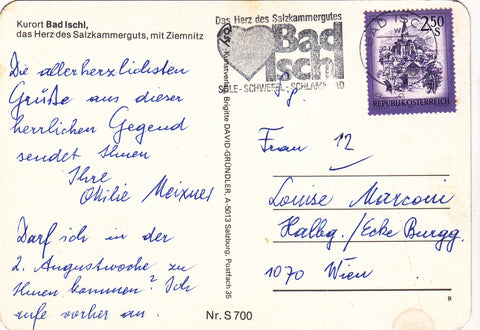 Kurort Bad Ischl,
das Herz des Salzkammerguts, mit Ziemnitz
Die allerherzlichsten
Grüße aus dieser
herrlichen Gegend
sendet Ihnen
Ihre
Ottilie Meixner
Darf ich in der
2. Augustwoche zu
Ihnen kommen? Ich
rufe vorher an.
Kunstverlag Brigitte DAVID-GRÜNDLER, A-5013 Salzburg, Postfach 35
Nr. S 700
Das Herz des Salzkammergutes
Bad
Ischl
SOLE-SCHWEFEL-SCHLAMMBAD
BAD ISCHL
2.50
S
REPUBLIK ÖSTERREICH
Frau 12
Louise Marconi
Halbg./Ecke Burgg.
1070 Wien
B